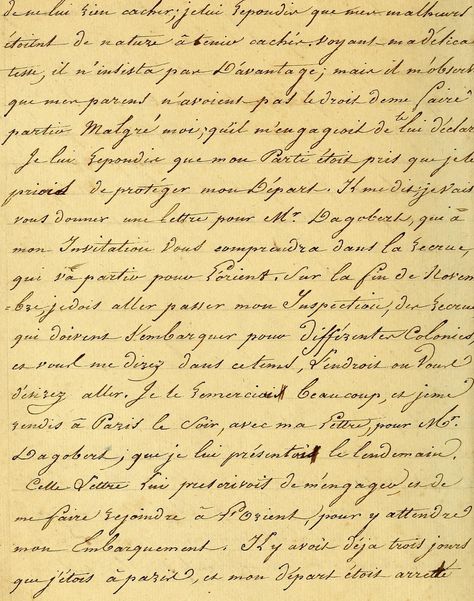 de ne lui rien cacher; je lui repondis que mes malheurs
étoient de nature à tenir cachés. voyant ma délica
tesse, il n'insista pas D'avantage; mais il m'observ
que mes parens n'avoient pas le droit de me faire
partir Malgré moi; qu'il m'engageoit de lui déclar
Je lui repondis que mon Parti étoit pris que je l
priois de protéger mon Départ. Il me dit; je vais
vous donner une lettre pour Mr. Dagobert, qui à
mon Invitation vous comprendra dans la recrue,
qui va partir pour L'orient. Sur la fin de Novem
=bre, je dois aller passer mon Inspection, des recrues
qui doivent s'embarquer pour différentes Colonies,
et vous me direz dans ce tems, L'endroit ou vous
désirez aller. Je le remerciai beaucoup, et je me
rendis à Paris le Soir, avec ma Lettre, pour Mr.
Dagobert; que je lui présentois le lendemain.
Cette Lettre lui prescrivoit de m'engager, et de
me faire rejoindre à L'orient, pour y attendre
mon Embarquement. Il y avoit déja trois jours
que j'étois à paris, et mon départ étoit arreté